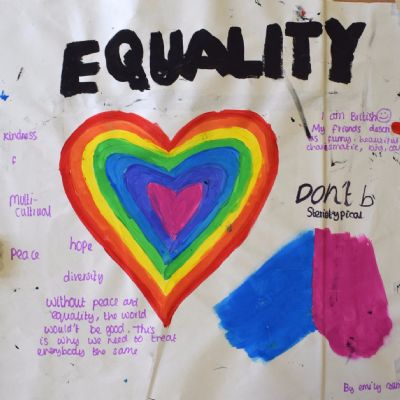 EQUALITY
I am British
My friends
as funny, beautiful
charasmatic, kind,
kindness
f
Multi-
cultural
DONT b
Steriotypical
Peace
hope
diversity
Without peace and
equality, the world
would't be good. This
is why we need to treat
everybody the same
By emily